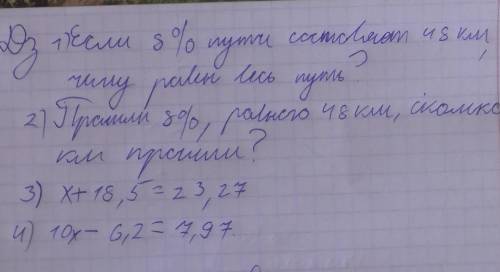 Дз 1) Если 8% пути составляет 48 км,
чему равен весь путь?
2) Прошли 8%, равного 48 км, сколько
км прошли?
3) x+18,5=23,27
4) 10x-6,2=7,97